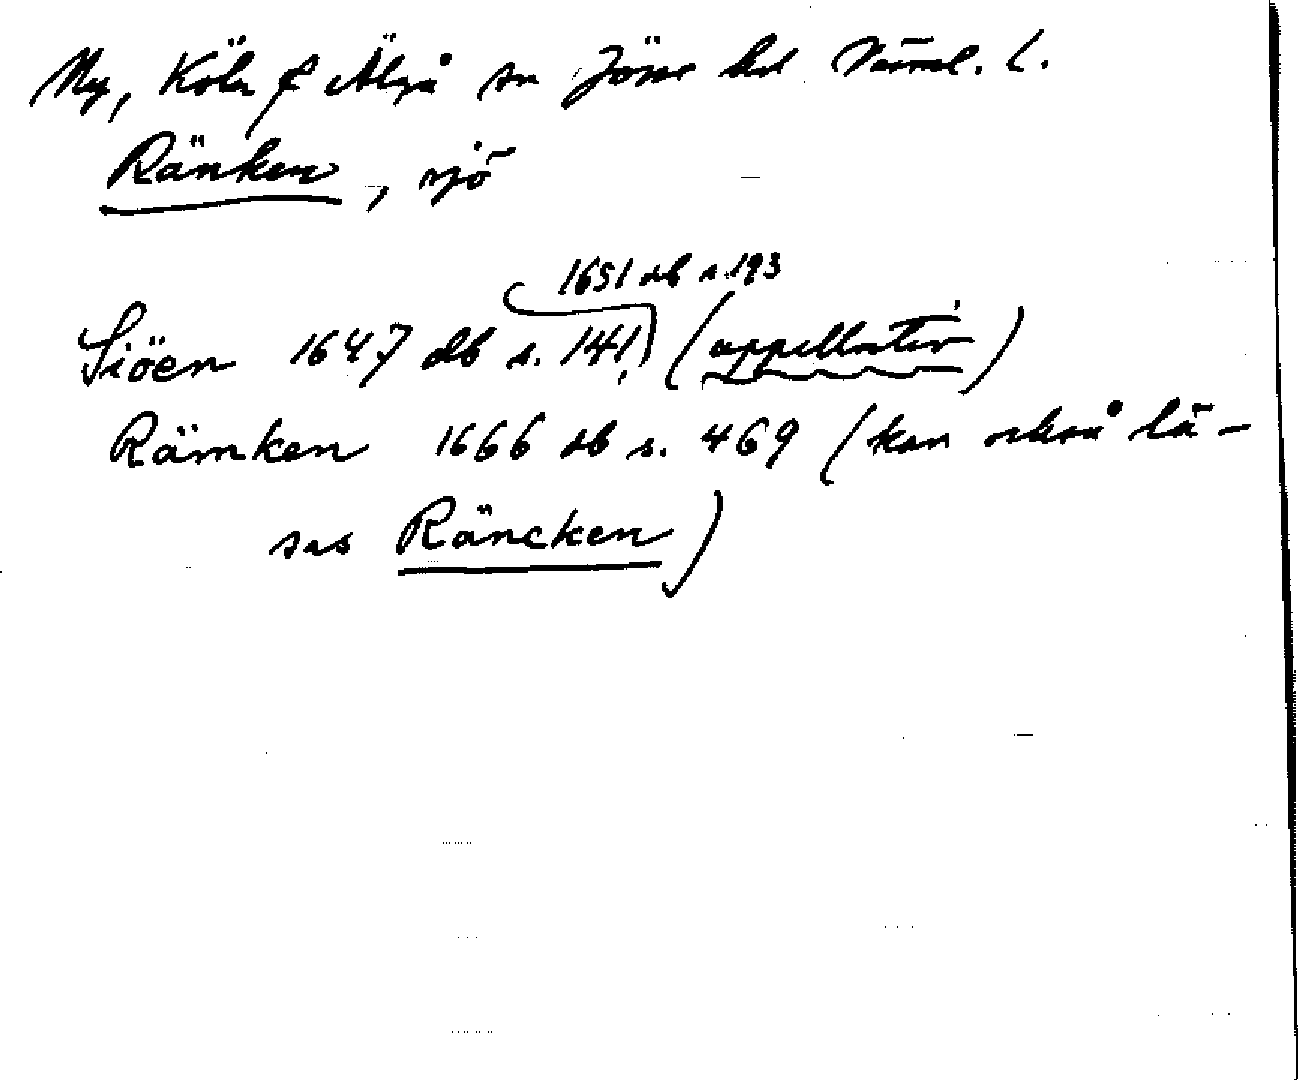 Ny, Köla & Älgå sn Jösse hd Värml. l.
Ränken, sjö
1651 db s. 193
Siöen 1647 db s. 141, (appellativ)
Rämken 1666 db s. 469 (kan också lä-
sas Räncken)